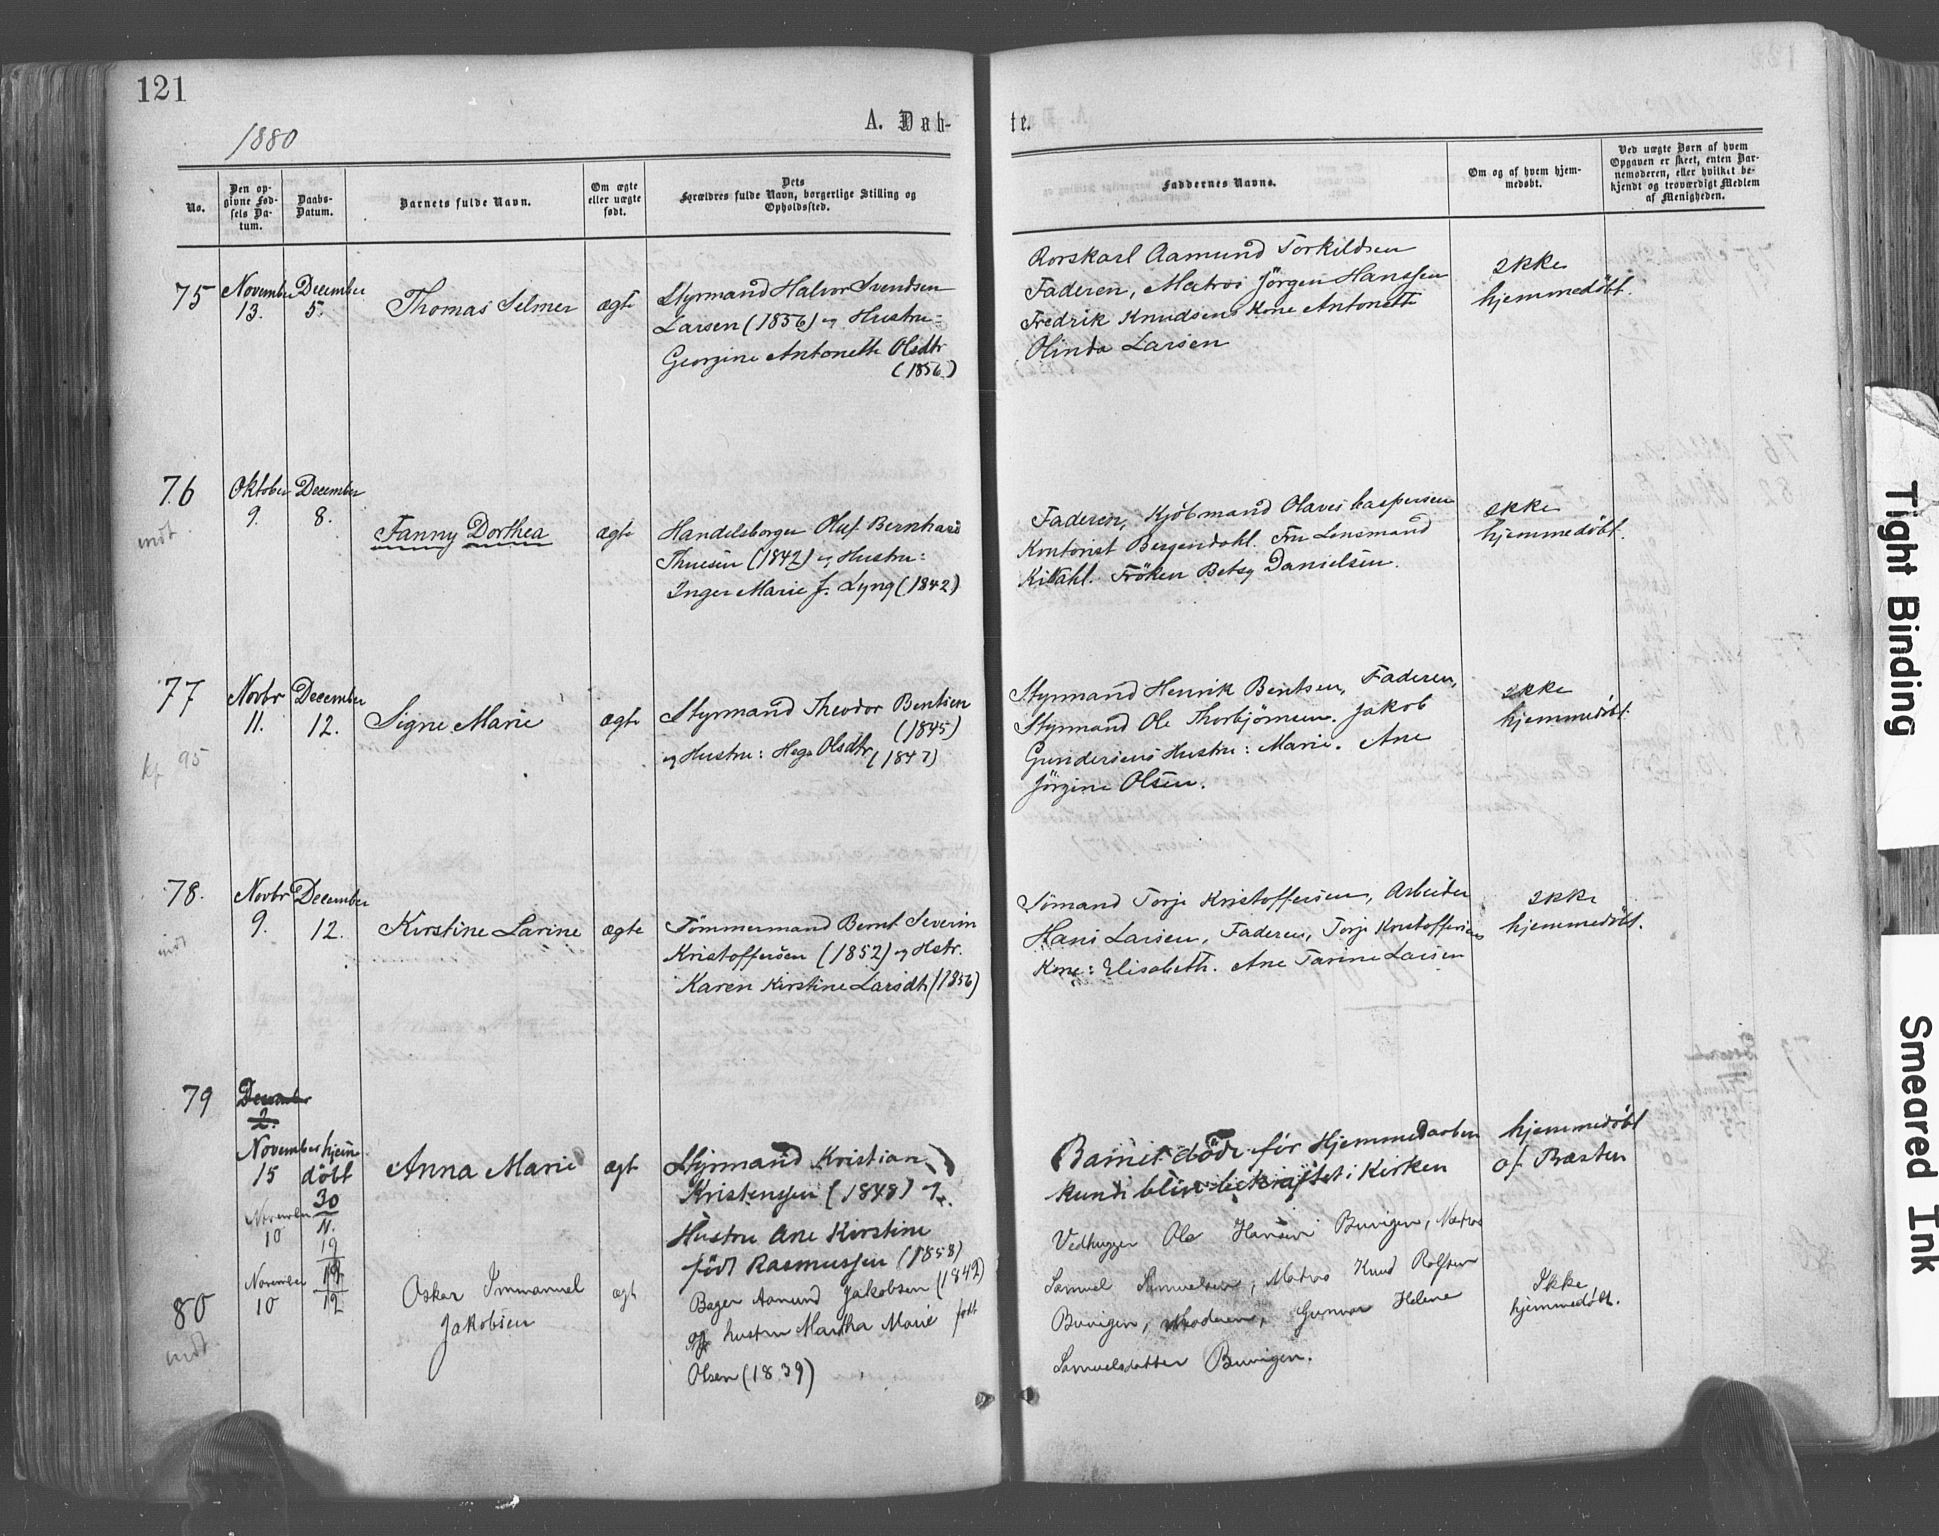 121
A. Døb-
te.
1880
No.
Den op-
givne Fød-
sels Da-
tum.
Daabs-
Datum.
Barnets fulde Navn.
Om ægte
eller uægte
født.
Dets
Forældres fulde Navn, borgerlige Stilling og
Opholdssted.
Faddernes Navne.
Om og af hvem hjem-
medøbt.
Ved uægte Børn af hvem
Opgaven er skeet, enten Bar-
nemoderen, eller hvilket be-
kjendt og troværdigt Medlem
af Menigheden.
75
November
13.
December
5.
Thomas Selmer
ægte
Styrmand Halvor Svendsen
Larsen (1856) og Hustru:
Georgine Antonette Olsdtr
(1856)
Rorskarl Aamund Torkildsen
Faderen, Matros Jörgen Hanssen
Fredrik Knudsens Kone Antonette
Olinda Larsen
Ikke
hjemmedøbt.
76
indt.
Oktober
9.
December
8.
Fanny Dorthea
ægte
Handelsborger Oluf Bernhard
Thuesen (1842) og Hustru:
Inger Marie f. Lyng (1842)
Faderen, Kjöbmand Olaves Caspersen
Kontorist Bergendahl. Fru Lensmand
Kildahl. Fröken Betsy Danielsen.
Ikke
hjemmedøbt.
77
kf 95
Novbr
11.
December
12.
Signe Marie
ægte
Styrmand Theodor Bentsen
(1845)
og Hustru: Hege Olsdtr (1847)
Styrmand Henrik Bentsen, Faderen,
Styrmand Ole Thorbjörnsen. Jakob
Gundersens Hustru: Marie. Ane
Jörgine Olsen.
Ikke
hjemmedøbt.
78.
indt
Novbr
9.
December
12.
Kirstine Larine
ægte
Tömmermand Bernt Severin
Kristoffersen (1852) og Hstr.
Karen Kirstine Larsdtr (1856)
Sömand Torje Kristoffersen, Arbeider
Hans Larsen, Faderen, Torje Kristoffersens
Kone: Elisabeth. Ane Tarine Larsen
Ikke
hjemmedøbt.
79
December
2.
November
15
hjem
döbt
30
11.
Anna Marie
ægte
Styrmand Kristian
Kristenssen (1848) og
Hustru Ane Kirstine
född Rasmussen (1858)
Barnet döde för Hjemmedaaben
kunde blive bekræftet i Kirken
hjemmedöbt
af Præsten
November
10
19
12
80
indt.
November
10
19
12
Oskar Immanuel
Jakobsen
ægte
Bager Aamund Jakobsen (1842)
og hustru Martha Marie født
Olsen (1839)
Vedhugger Ole Hansen Buvigen, Matros
Samuel Samuelsen, Matros Knud Rolfsen
Buvigen, Moderen, Gunvor Helene
Samuelsdatter Buvigen.
Ikke
hjemmedöbt.
Tight Binding
Smeared Ink